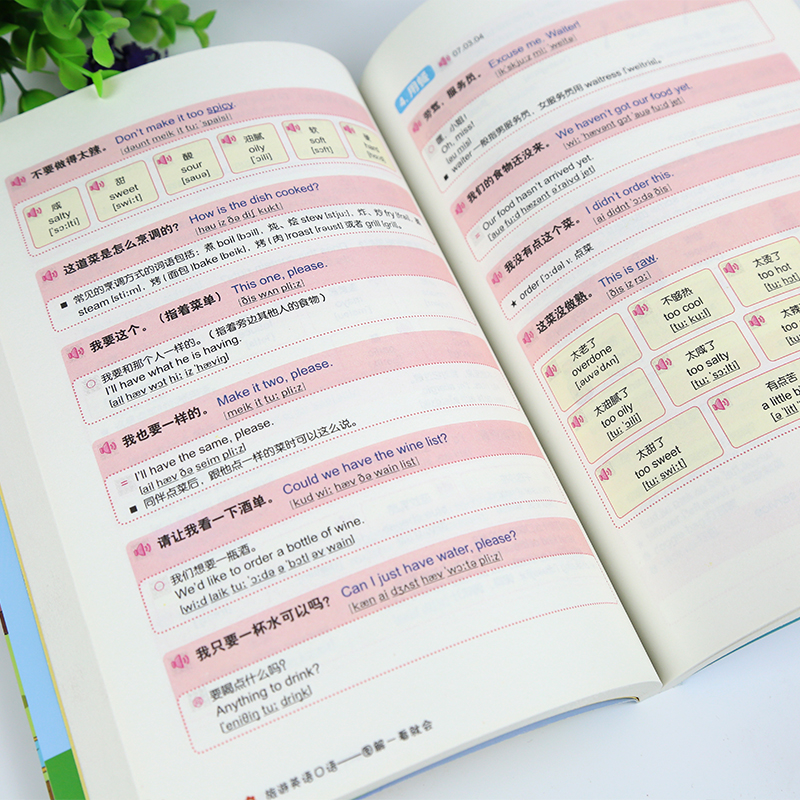 不要做得太辣。 Don't make it too spicy.
[dəunt meik it tuː ˈspaisi]
咸
salty
[ˈsɔːlti]
甜
sweet
[swiːt]
酸
sour
[sauə]
油腻
oily
[ˈɔili]
软
soft
[sɔft]
这道菜是怎么烹调的? How is the dish cooked?
[hau iz ðə diʃ kukt]
■ 常见的烹调方式的词语包括:煮 boil [bɔil]、炖、烩 stew [stjuː]、炸、炒 fry [frai]、蒸
steam [stiːm]、烤(面包)bake [beik]、烤(肉)roast [rəust] 或者 grill [gril]。
我要这个。(指着菜单) This one, please.
[ðis wʌn pliːz]
我要和那个人一样的。(指着旁边其他人的食物)
I'll have what he is having.
[ail hæv wɔt hiː iz ˈhæviŋ]
我也要一样的。 Make it two, please.
[meik it tuː pliːz]
= I'll have the same, please.
[ail hæv ðə seim pliːz]
■ 同伴点菜后,跟他点一样的菜时可以这么说。
请让我看一下酒单。 Could we have the wine list?
[kud wiː hæv ðə wain list]
我们想要一瓶酒。
We'd like to order a bottle of wine.
[wiːd laik tuː ˈɔːdə ə ˈbɔtl əv wain]
我只要一杯水可以吗? Can I just have water, please?
[kæn ai dʒʌst hæv ˈwɔːtə pliːz]
要喝点什么吗?
Anything to drink?
[ˈeniθiŋ tuː driŋk]
旅游英语口语——图解一看就会
4. 用餐 07.03.04
劳驾,服务员。 Excuse me. Waiter!
[ikˈskjuːz miː ˈweitə]
嘿,小姐!
Oh, miss!
[əu mis]
■ waiter 一般指男服务员,女服务员用 waitress [ˈweitris]。
我们的食物还没来。 We haven't got our food yet.
[wiː ˈhævənt gɔt ˈauə fuːd jet]
= Our food hasn't arrived yet.
[auə fuːd hæzənt əˈraivd jet]
我没有点这个菜。 I didn't order this.
[ai didnt ˈɔːdə ðis]
★ order [ˈɔːdə] v. 点菜
这菜没做熟。 This is raw.
[ðis iz rɔː]
太老了
overdone
[ˌəuvəˈdʌn]
不够热
too cool
[tuː kuːl]
太烫了
too hot
[tuː hɔt]
太油腻了
too oily
[tuː ˈɔili]
太咸了
too salty
[tuː ˈsɔːlti]
太辣
too
[tuː
太甜了
too sweet
[tuː swiːt]
有点苦
a little b
[ə ˈlitl